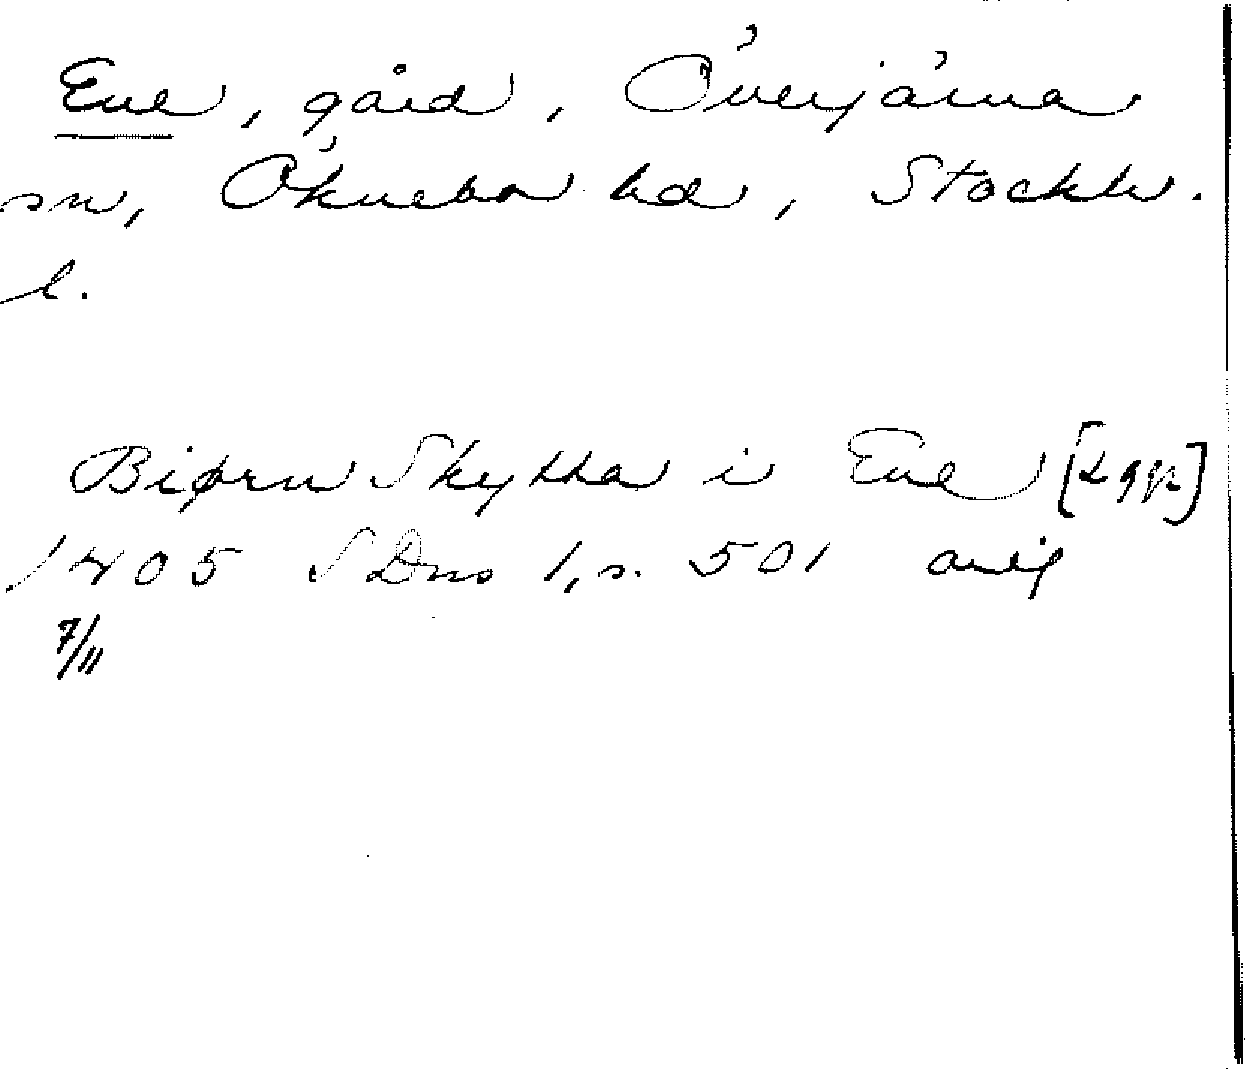 Ene, gård, Överjärna
sn, Öknebo hd, Stockh.
l.
Biørn Skytta i Ene [2 ggr]
1405 SDns 1, s. 501 avig
7/11